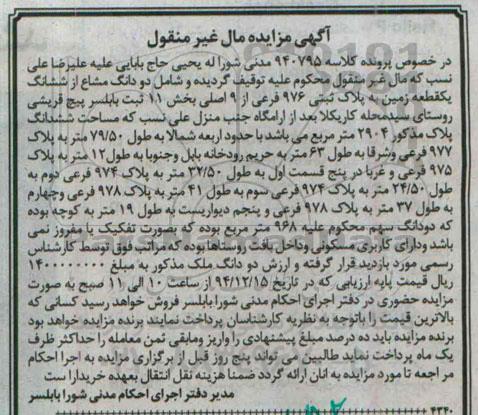 آگهی مزایده مال غیر منقول
در خصوص پرونده کلاسه ۹۴۰۷۹۵ مدنی شورا له یحیی حاج بابایی علیه علیرضا علی
نسب که مال غیر منقول محکوم علیه توقیف گردیده و شامل دو دانگ مشاع از ششدانگ
یکقطعه زمین به پلاک ثبتی ۹۷۶ فرعی از ۹ اصلی بخش ۱۱ ثبت بابلسر پیچ قریشی
روستای سیدمحله کاریکلا بعد از ارامگاه جنب منزل علی نسب که مساحت ششدانگ
پلاک مذکور ۲۹۰۴ متر مربع می باشد با حدود اربعه شمالا به طول ۷۹/۵۰ متر به پلاک
۹۷۷ فرعی وشرقا به طول ۶۳ متر به حریم رودخانه بابل وجنوبا به طول ۱۲ متر به پلاک
۹۷۵ فرعی و غربا در پنج قسمت اول به طول ۳۷/۵۰ متر به پلاک ۹۷۴ فرعی دوم به
طول ۲۴/۵۰ متر به پلاک ۹۷۴ فرعی سوم به طول ۴۱ متر به پلاک ۹۷۸ فرعی وچهارم
به طول ۳۷ متر به پلاک ۹۷۸ فرعی و پنجم دیواریست به طول ۱۹ متر به کوچه بوده
که دودانگ سهم محکوم علیه ۹۶۸ متر مربع بوده که بصورت تفکیک یا مفروز نمی
باشد ودارای کاربری مسکونی وداخل بافت روستا بوده که مراتب فوق توسط کارشناس
رسمی مورد بازدید قرار گرفته و ارزش دو دانگ ملک مذکور به مبلغ
ریال قیمت پایه ارزیابی که در تاریخ ۹۴/۱۲/۱۵ از ساعت ۱۰ الی ۱۱ صبح به صورت
مزایده حضوری در دفتر اجرای احکام مدنی شورا بابلسر فروش خواهد رسید کسانی که
بالاترین قیمت را باتوجه به نظریه کارشناسان پرداخت نمایند برنده مزایده خواهد بود
برنده مزایده باید ده درصد مبلغ پیشنهادی را واریز ومابقی ثمن معامله را حداکثر ظرف
یک ماه پرداخت نماید طالبین می تواند پنج روز قبل از برگزاری مزایده به اجرا احکام
مراجعه تا مورد مزایده به انان ارائه گردد ضمنا هزینه نقل انتقال بعهده خریدارا ست
مدیر دفتر اجرای احکام مدنی شورا بابلسر
۴۳۴۰